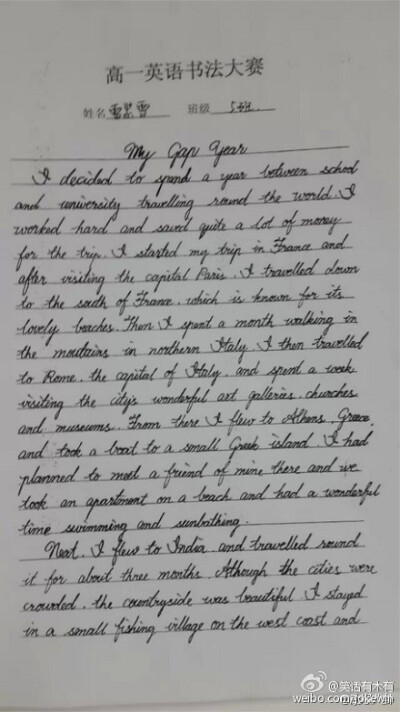 高一英语书法大赛
姓名 班级 5班.
My Gap Year
I decided to spend a year between school
and university travelling round the world. I
worked hard and saved quite a lot of money
for the trip. I started my trip in France and
after visiting the capital Paris. I travelled down
to the south of France. which is known for its
lovely beaches. Then I spent a month walking in
the moutains in northern Italy. I then travelled
to Rome. the capital of Italy. and spent a week
visiting the city's wonderful art galleries. churches
and museums. From there I flew to Athens. Greece.
and took a boat to a small Greek island. I had
planned to meet a friend of mine there and we
took an apartment on a beach and had a wonderful
time swimming and sunbathing.
Next. I flew to India. and travelled round
it for about three months. Although the cities were
crowded. the countryside was beautiful. I stayed
in a small fishing village on the west coast and
@笑话有木有
weibo.com/